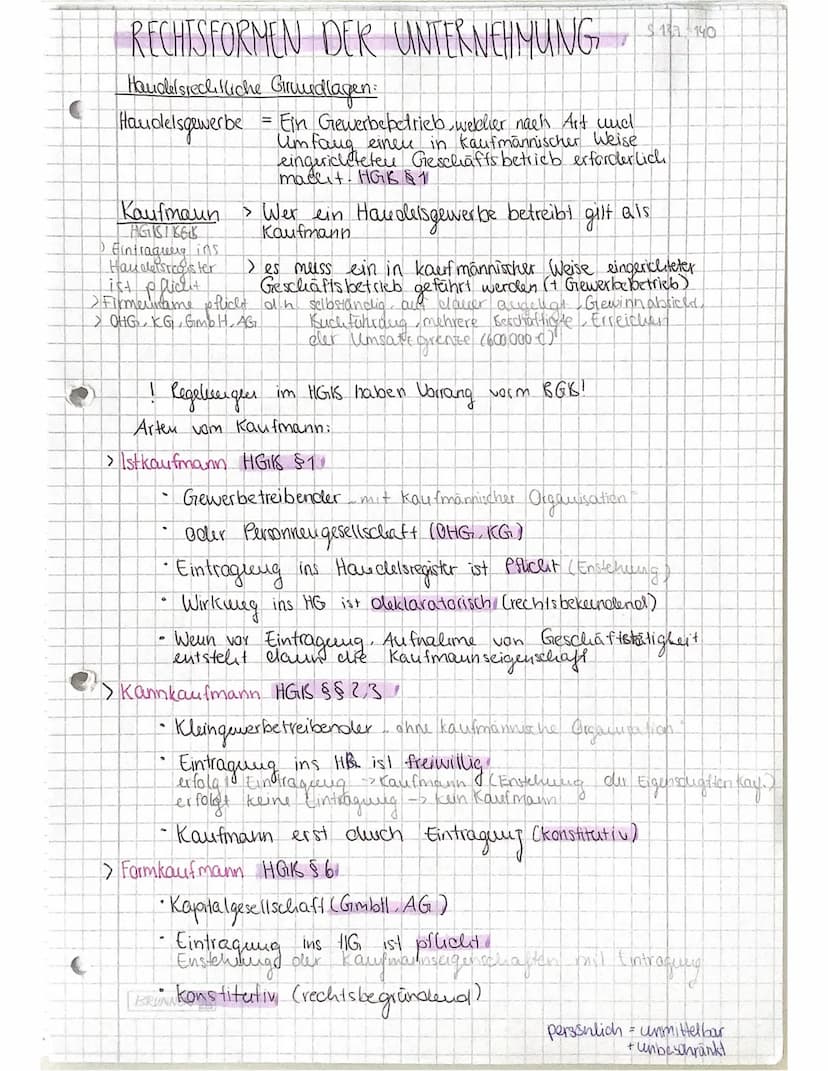 RECHTSFORMEN DER UNTERNEHMUNG S 137-140
Handelsrechtliche Grundlagen:
Handelsgewerbe = Ein Gewerbebetrieb, welcher nach Art und
Umfang einen in kaufmännischer Weise
eingerichteten Geschäftsbetrieb erforderlich
macht. HGB §1
Kaufmann > Wer ein Handelsgewerbe betreibt gilt als
HGB / BGB Kaufmann
> Eintragung ins
Handelsregister > es muss ein in kaufmännischer Weise eingerichteter
ist pflicht Geschäftsbetrieb geführt werden (+ Gewerbebetrieb)
> Firmenname pflicht d.h selbständig, auf dauer angelegt, Gewinnabsicht,
> OHG, KG, GmbH, AG Buchführung, mehrere Beschäftigte, Erreichen
der Umsatzgrenze (600 000 €)
! Regelungen im HGB haben Vorrang vorm BGB!
Arten vom Kaufmann:
> Istkaufmann HGB §1
• Gewerbetreibender "mit kaufmännischer Organisation"
• oder Personnengesellschaft (OHG, KG)
• Eintragung ins Handelsregister ist Pflicht (Enstehung)
• Wirkung ins HG ist deklaratorisch (rechtsbekundend)
• Wenn vor Eintragung, Aufnahme von Geschäftstätigkeit
entsteht dann die Kaufmannseigenschaft
> Kannkaufmann HGB §§ 2,3
• Kleingewerbetreibender "ohne kaufmännische Organisation"
• Eintragung ins HR ist freiwillig
erfolgt Eintragung -> Kaufmann (Enstehung der Eigenschaften Kauf.)
erfolgt keine Eintragung -> kein Kaufmann
• Kaufmann erst durch Eintragung (konstitutiv)
> Formkaufmann HGB § 6
• Kapitalgesellschaft (GmbH, AG)
• Eintragung ins HG ist pflicht
Enstehung der Kaufmannseigenschaften mit Eintragung
• konstitutiv (rechtsbegründend)
persönlich = unmittelbar
+ unbeschränkt